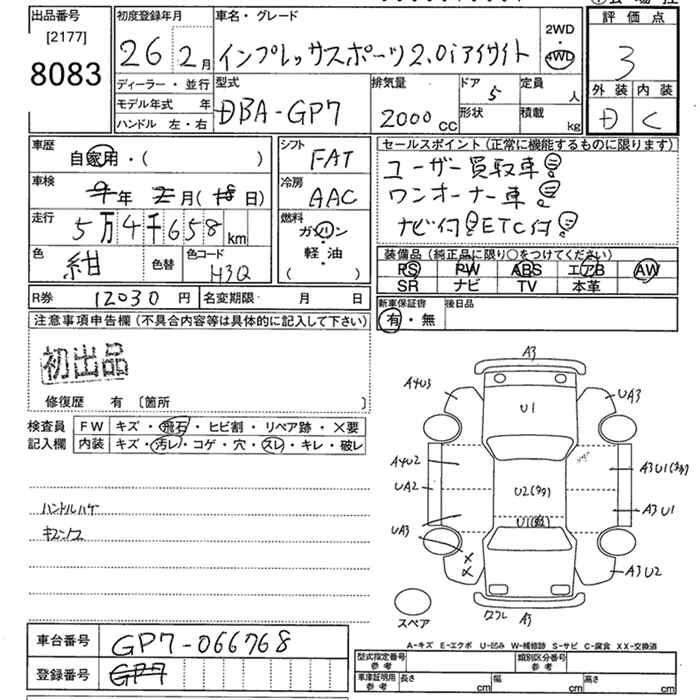 出品番号
[2177]
8083
初度登録年月
26年 2月
車名・グレード
インプレッサスポーツ2.0iアイサイト
2WD
・
4WD
評価点
3
外装 内装
D C
ディーラー・並行
モデル年式 年
ハンドル 左・右
型式
DBA-GP7
排気量
2000cc
ドア
5
形状
定員
人
積載
kg
車歴
自家用・( )
車検
年 月( 日)
走行
5万4千658km
色
紺
色替
色コード
H3Q
シフト
FAT
冷房
AAC
燃料
ガソリン
・
軽油
( )
セールスポイント(正常に機能するものに限ります)
ユーザー買取車
ワンオーナー車
ナビ付 ETC付
装備品(純正品に限り○をつけてください)
PS PW ABS エアB AW
SR ナビ TV 本革
新車保証書
有・無
後日品
R券 12030円
名変期限 月 日
注意事項申告欄(不具合内容等は具体的に記入して下さい)
初出品
修復歴 有 〔箇所 〕
検査員
記入欄
FW キズ・飛石・ヒビ割・リペア跡・×要
内装 キズ・汚レ・コゲ・穴・スレ・キレ・破レ
ハンドルハゲ
A3
A4U3
U1
UA3
A4U2
A3U1(多)
UA2
U2(多)
A3U1
UA3
×
×
A3U2
A3
スペア
A-キズ E-エクボ U-凹み W-補修跡 S-サビ C-腐食 XX-交換済
車台番号 GP7-066768
登録番号 GP7
型式指定番号
参考
類別区分番号
参考
車庫証明用
参考
長さ cm
幅 cm
高さ cm